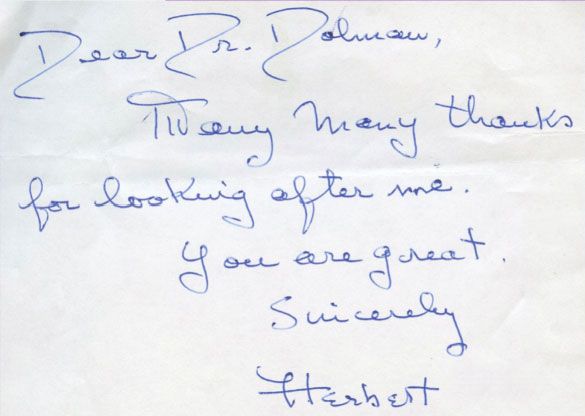 Dear Dr. Dolman,
Many Many thanks
for looking after me.
You are great.
Sincerely
Herbert